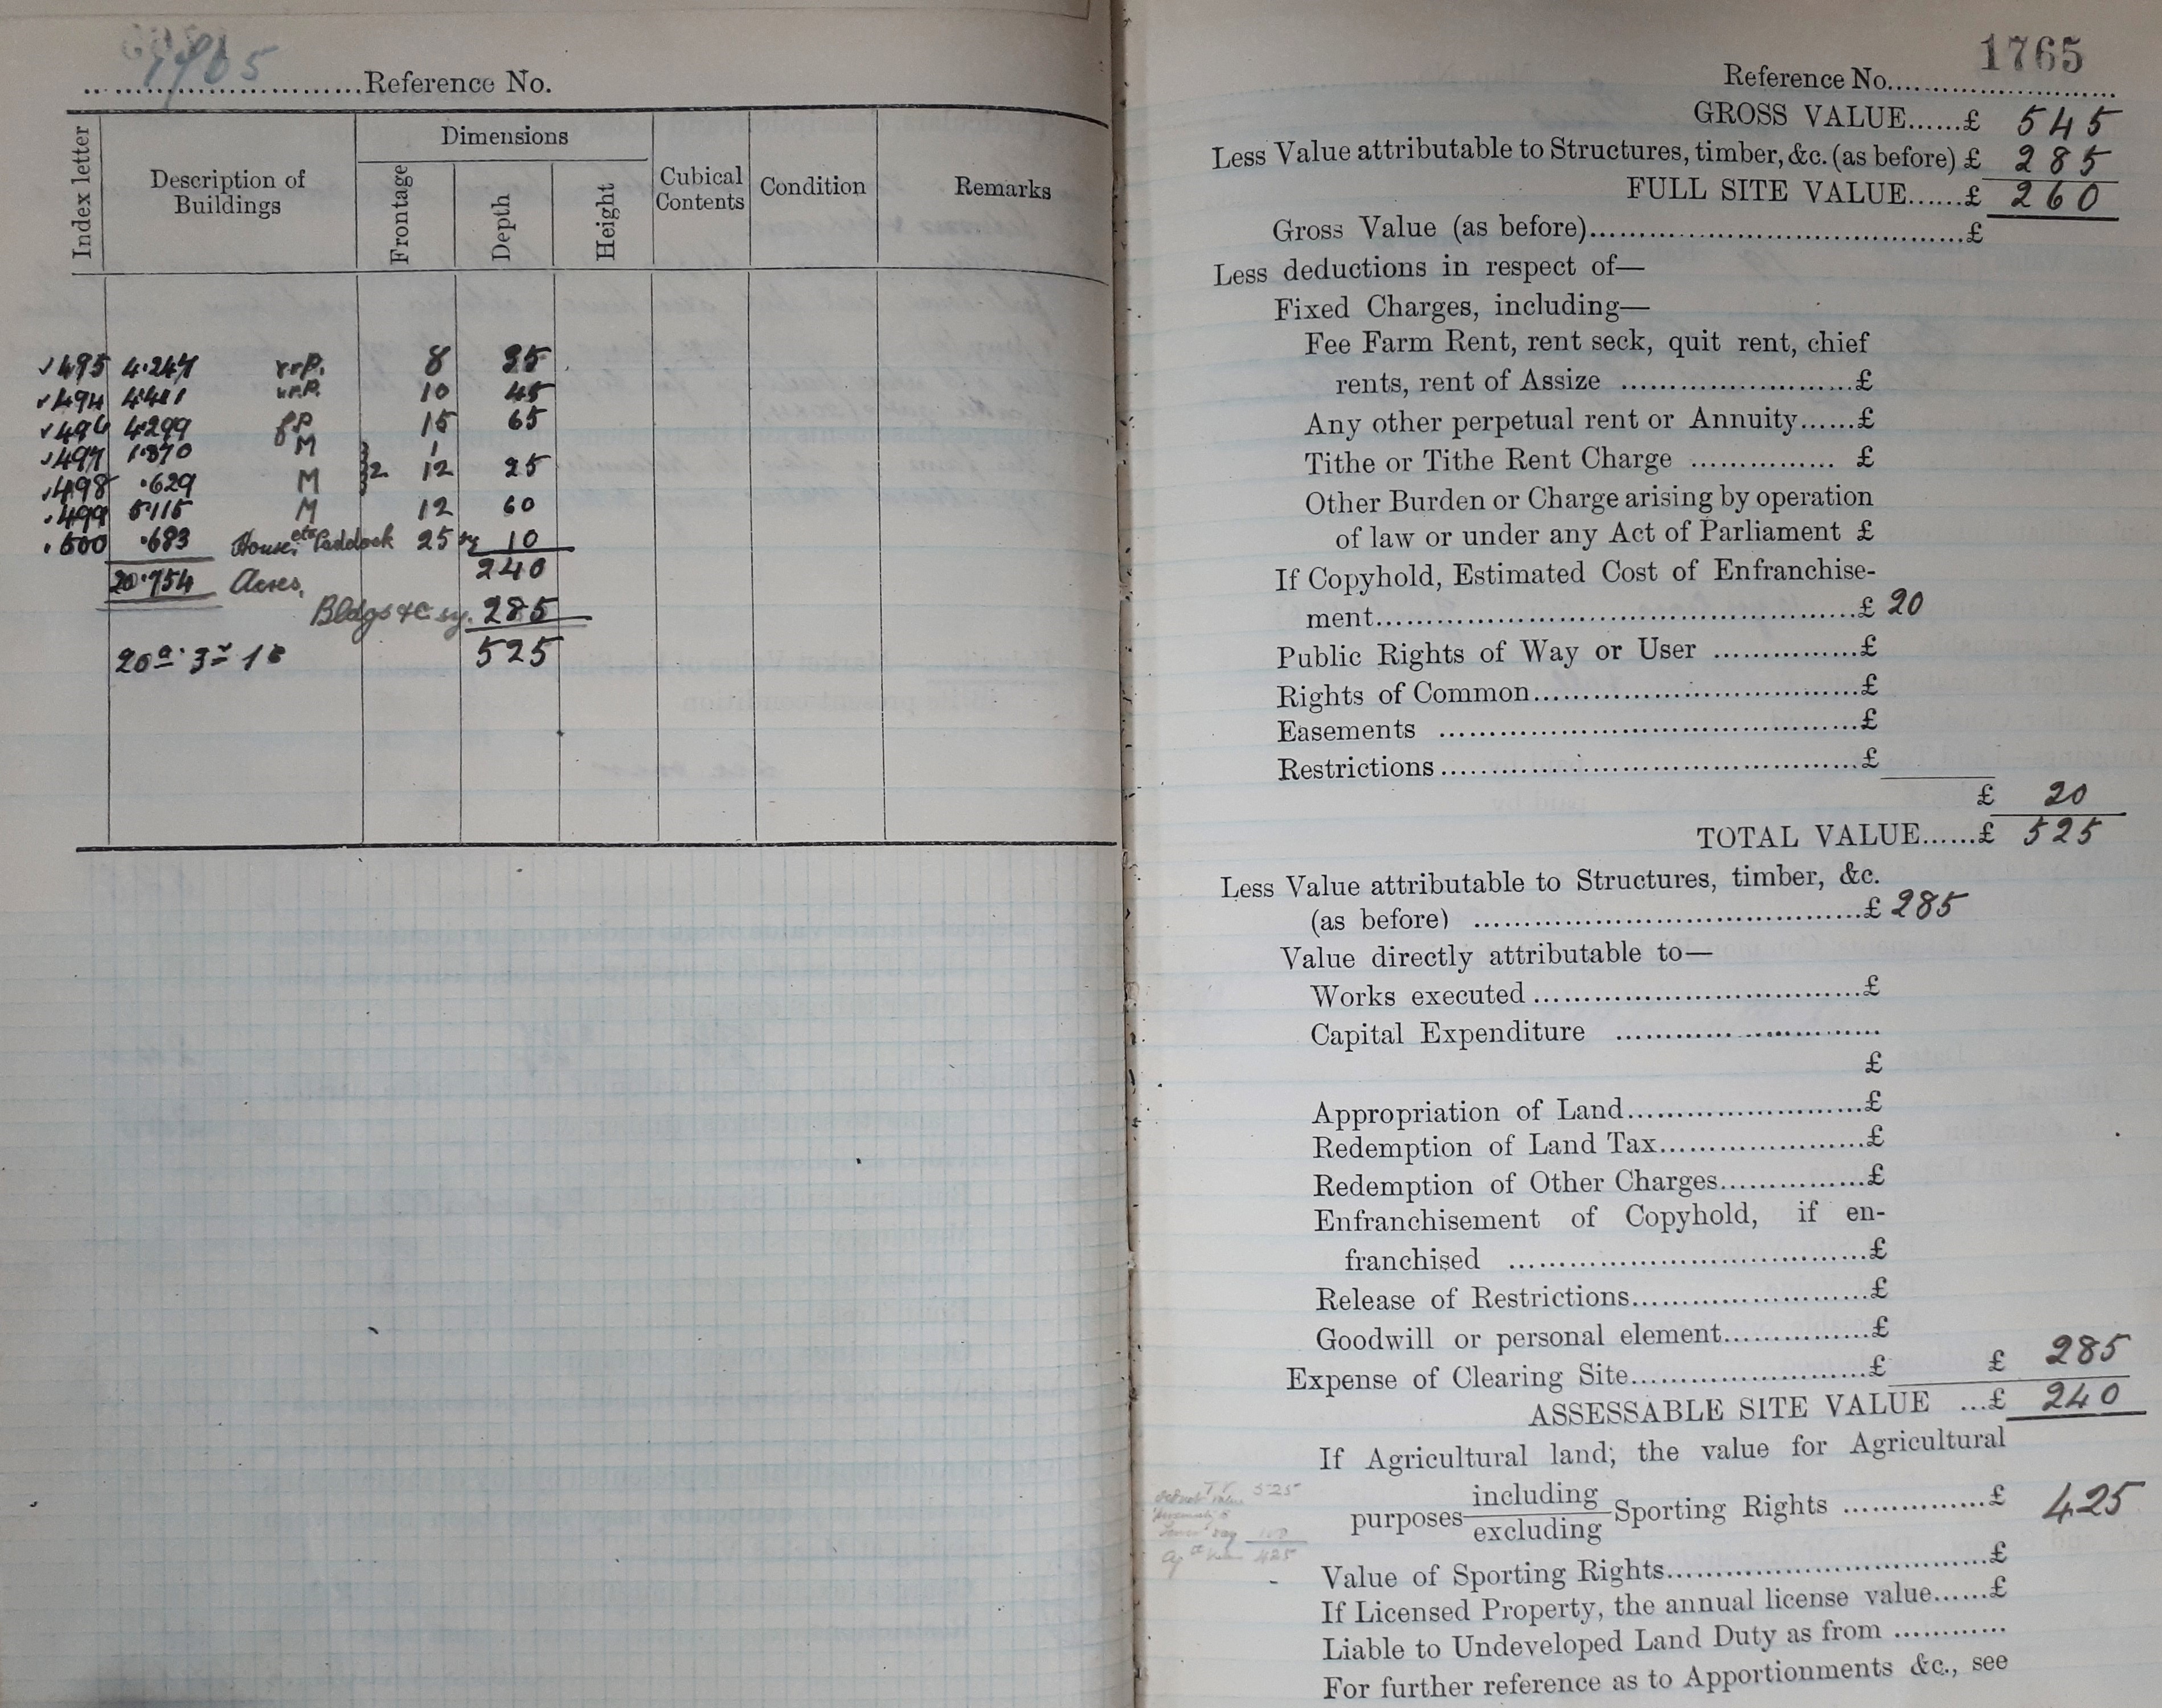 1765
Reference No.
Index letter
Description of Buildings
Dimensions
Frontage
Depth
Height
Cubical Contents
Condition
Remarks
495 4.247 r.r.P. 8 35
494 4.411 r.r.P. 10 45
496 4.299 f.P. 15 65
497 1.870 M 1
498 .629 M 2 12 25
499 5.115 M 12 60
500 .683 House, etc Paddock 25 sy 10
20.754 Acres, 240
Bldgs &c. sy. 285
20a. 3r 1 525
1765
Reference No.
GROSS VALUE......£ 545
Less Value attributable to Structures, timber, &c. (as before) £ 285
FULL SITE VALUE......£ 260
Gross Value (as before)......£
Less deductions in respect of—
Fixed Charges, including—
Fee Farm Rent, rent seck, quit rent, chief
rents, rent of Assize ......£
Any other perpetual rent or Annuity......£
Tithe or Tithe Rent Charge ...... £
Other Burden or Charge arising by operation
of law or under any Act of Parliament £
If Copyhold, Estimated Cost of Enfranchise-
ment......£ 20
Public Rights of Way or User ......£
Rights of Common......£
Easements ......£
Restrictions......£
£ 20
TOTAL VALUE......£ 525
Less Value attributable to Structures, timber, &c.
(as before) ......£ 285
Value directly attributable to—
Works executed......£
Capital Expenditure ......
£
Appropriation of Land......£
Redemption of Land Tax......£
Redemption of Other Charges......£
Enfranchisement of Copyhold, if en-
franchised ......£
Release of Restrictions......£
Goodwill or personal element......£
Expense of Clearing Site......£ £ 285
ASSESSABLE SITE VALUE ...£ 240
If Agricultural land; the value for Agricultural
purposes including/excluding Sporting Rights ......£ 425
T.V. 525
425
Value of Sporting Rights......£
If Licensed Property, the annual license value......£
Liable to Undeveloped Land Duty as from ......
For further reference as to Apportionments &c., see